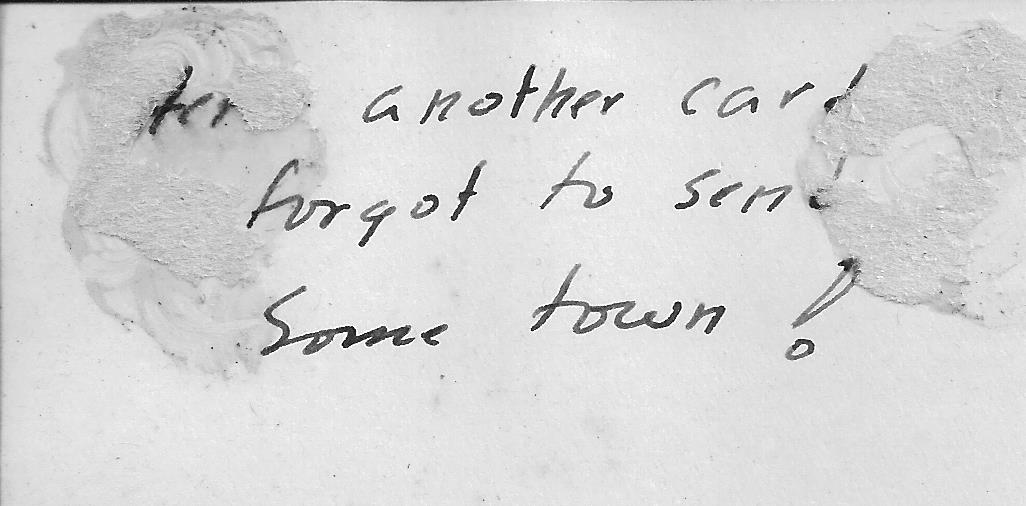 another card
forgot to send
Some town!